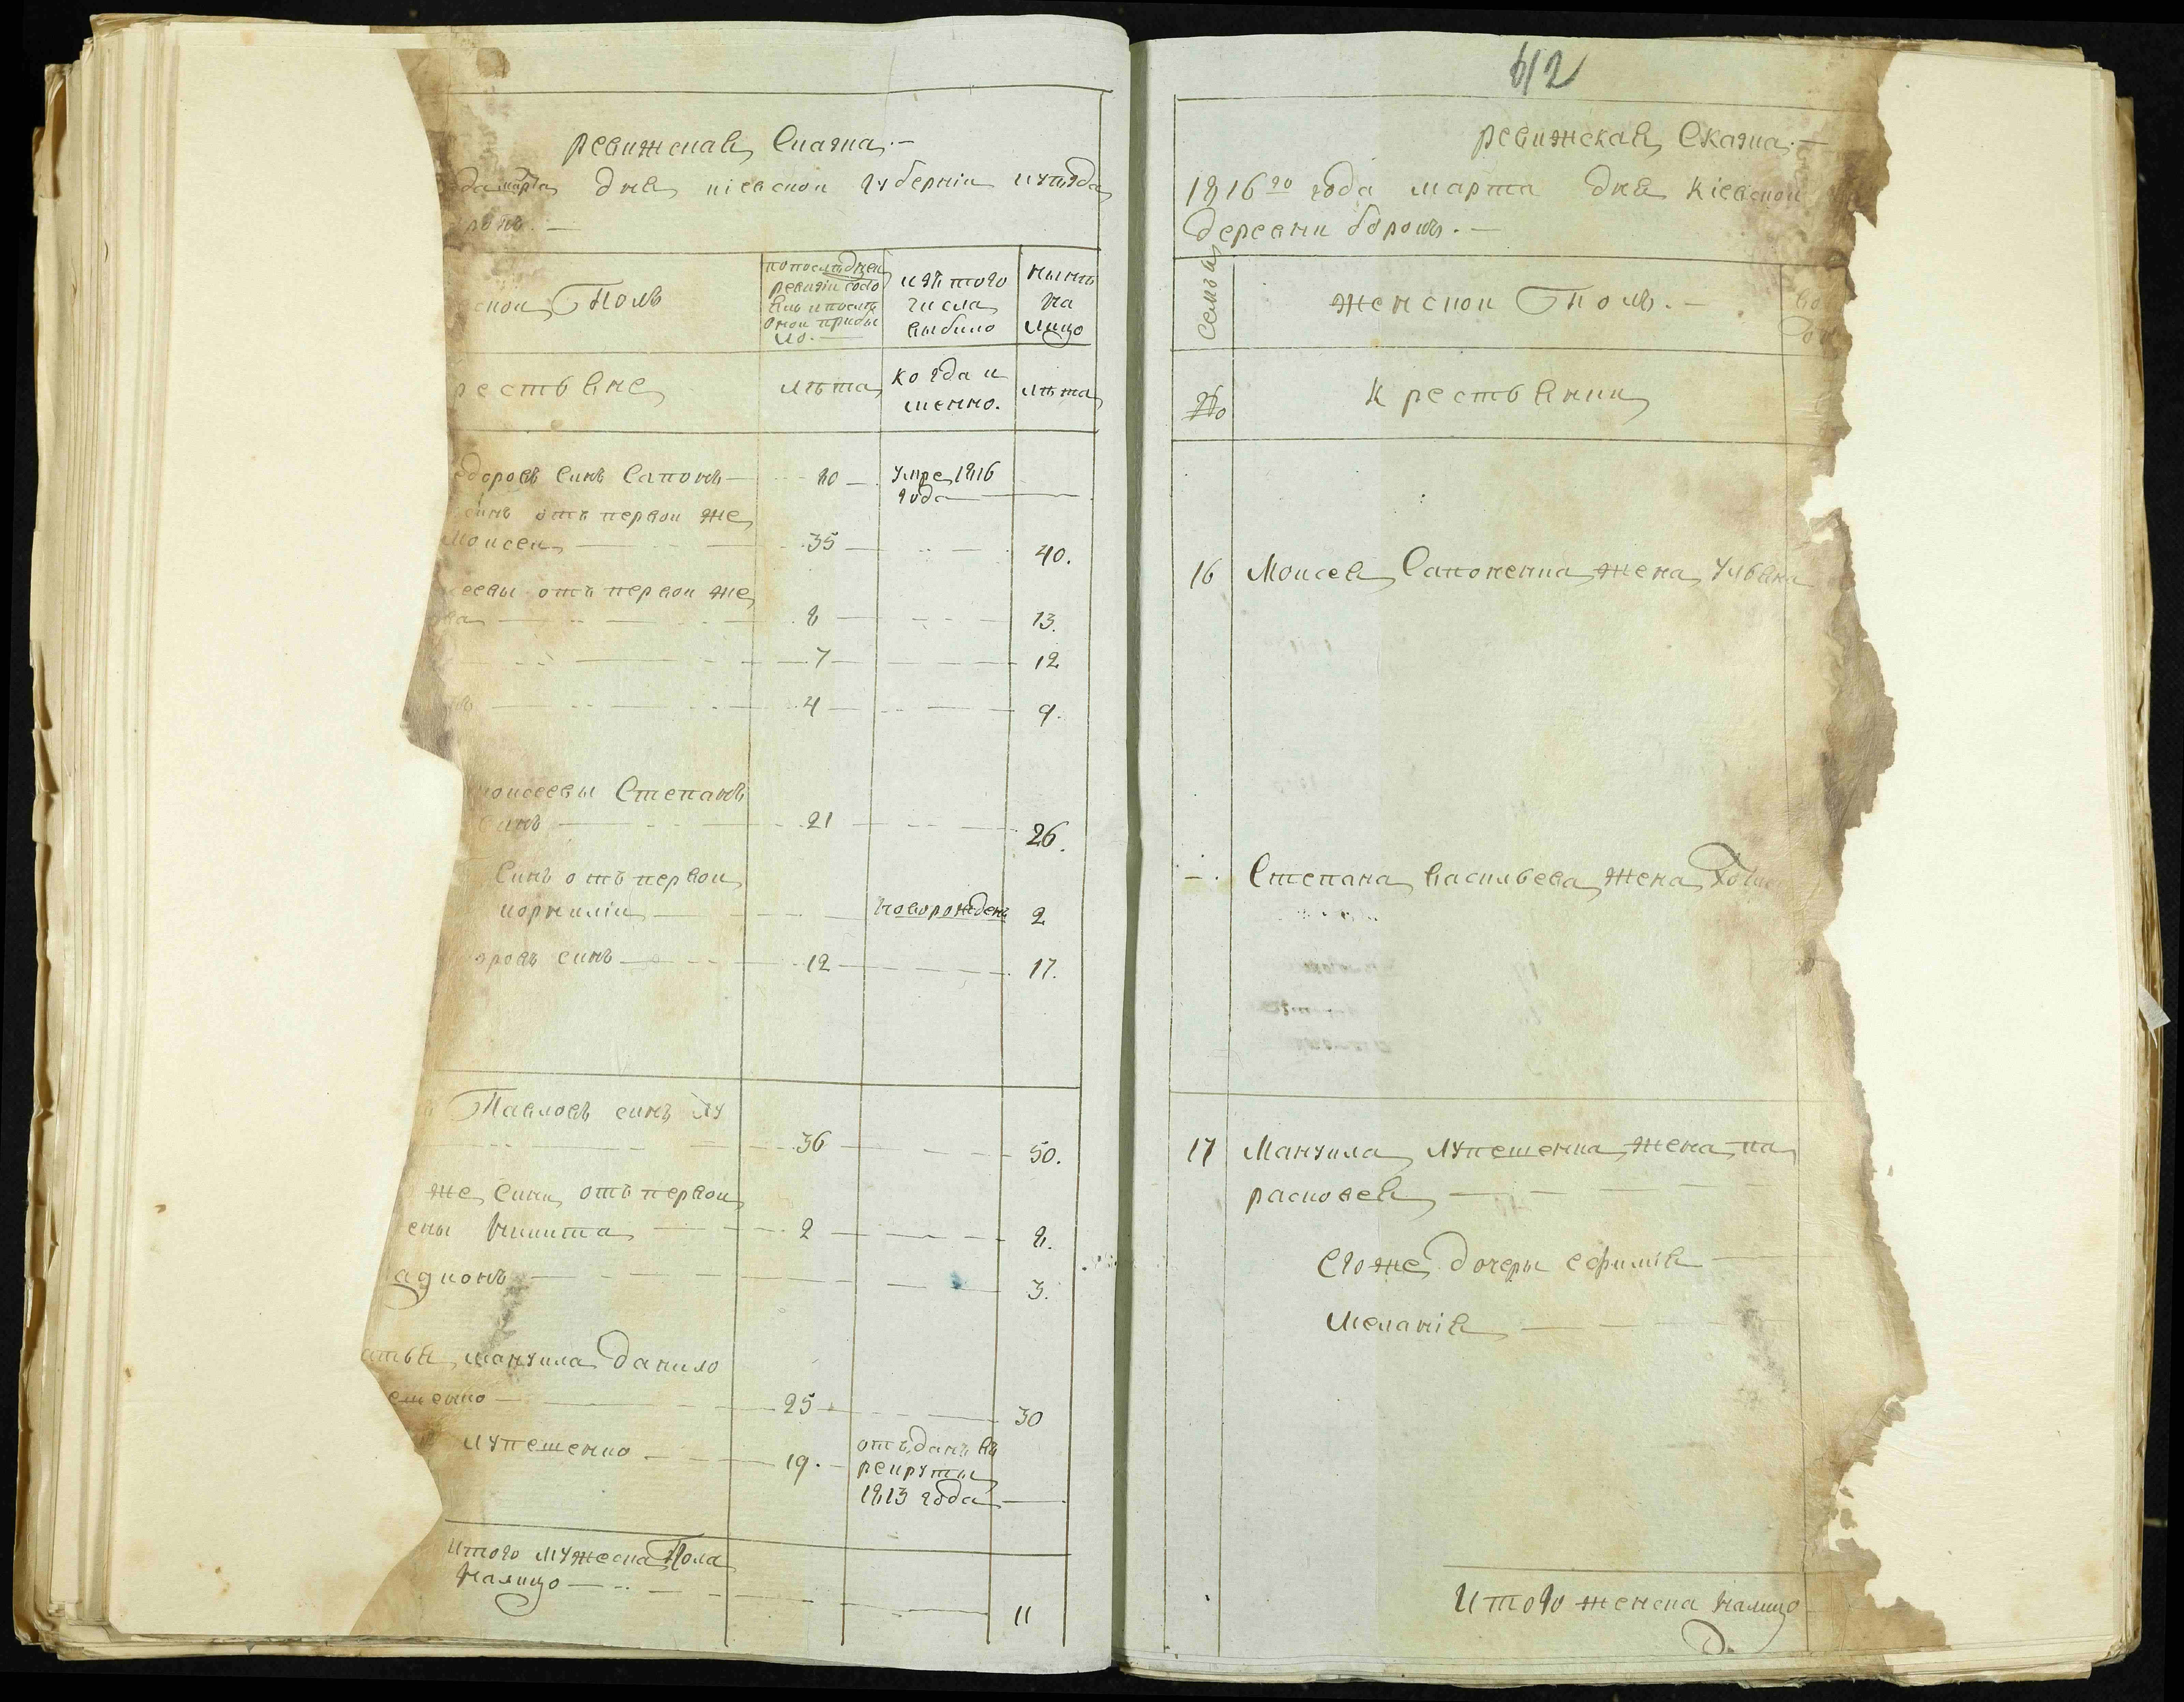 ревижская Сказка.-
да марта дня кіевской губерніи
ской Полъ
попоследней
ревизіи состо
яло и после
оной прибы
ло.
изъ того
числа
выбило
нынѣ
на
лицо
рестьяне
лѣта
когда и
менно.
лѣта
едоровъ Синъ Сапонъ
80
умре 1816
года
синъ отъ первои же
Моисеи
35
40.
сеевы отъ первои же
8
13.
7
12
4
9.
моисеевы Степанъ
синъ
21
26.
Синъ отъ первои
корнилiи
новорожденъ
2
оровъ синъ
12
17.
Павловъ синъ лу
36
50.
же сини отъ первои
ены Никита
2
8.
адионъ
3.
атья мануила данило
ешенко
25
30
лупешенко
19.
отъданъ въ
рекруты
1813 года
итого мужеска Пола
налицо
11
612
ревижская Сказка.-
1816го года марта дня Кіевской
деревни боровъ.-
Семья
женской Полъ.-
№
Крестьянки
16 Моисея Сапоненка жена Ульяна
Степана васильева жена
17 Мануила лупешенка жена па
расковея
Егоже дочеры ефимія
меланія
Итого женска налицо